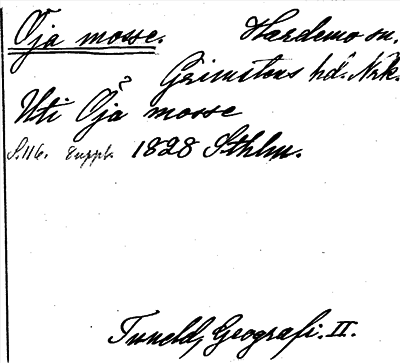 Öja mosse. Hardemo sn.
Grimstens hd. Nrk.
Uti Öja mosse
S. 116. suppl. 1828 Sthlm.
Tuneld, Geografi. II.